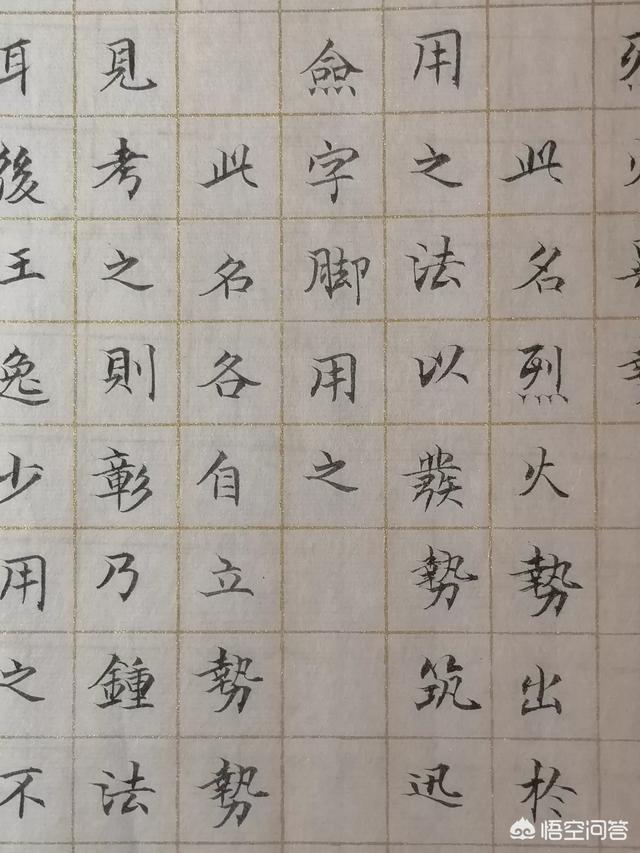 此名烈火勢出於
用之法以發勢筑迅
僉字脚用之
此名各自立勢勢
見考之則彰乃鍾法
耳後王逸少用之不
悟空问答